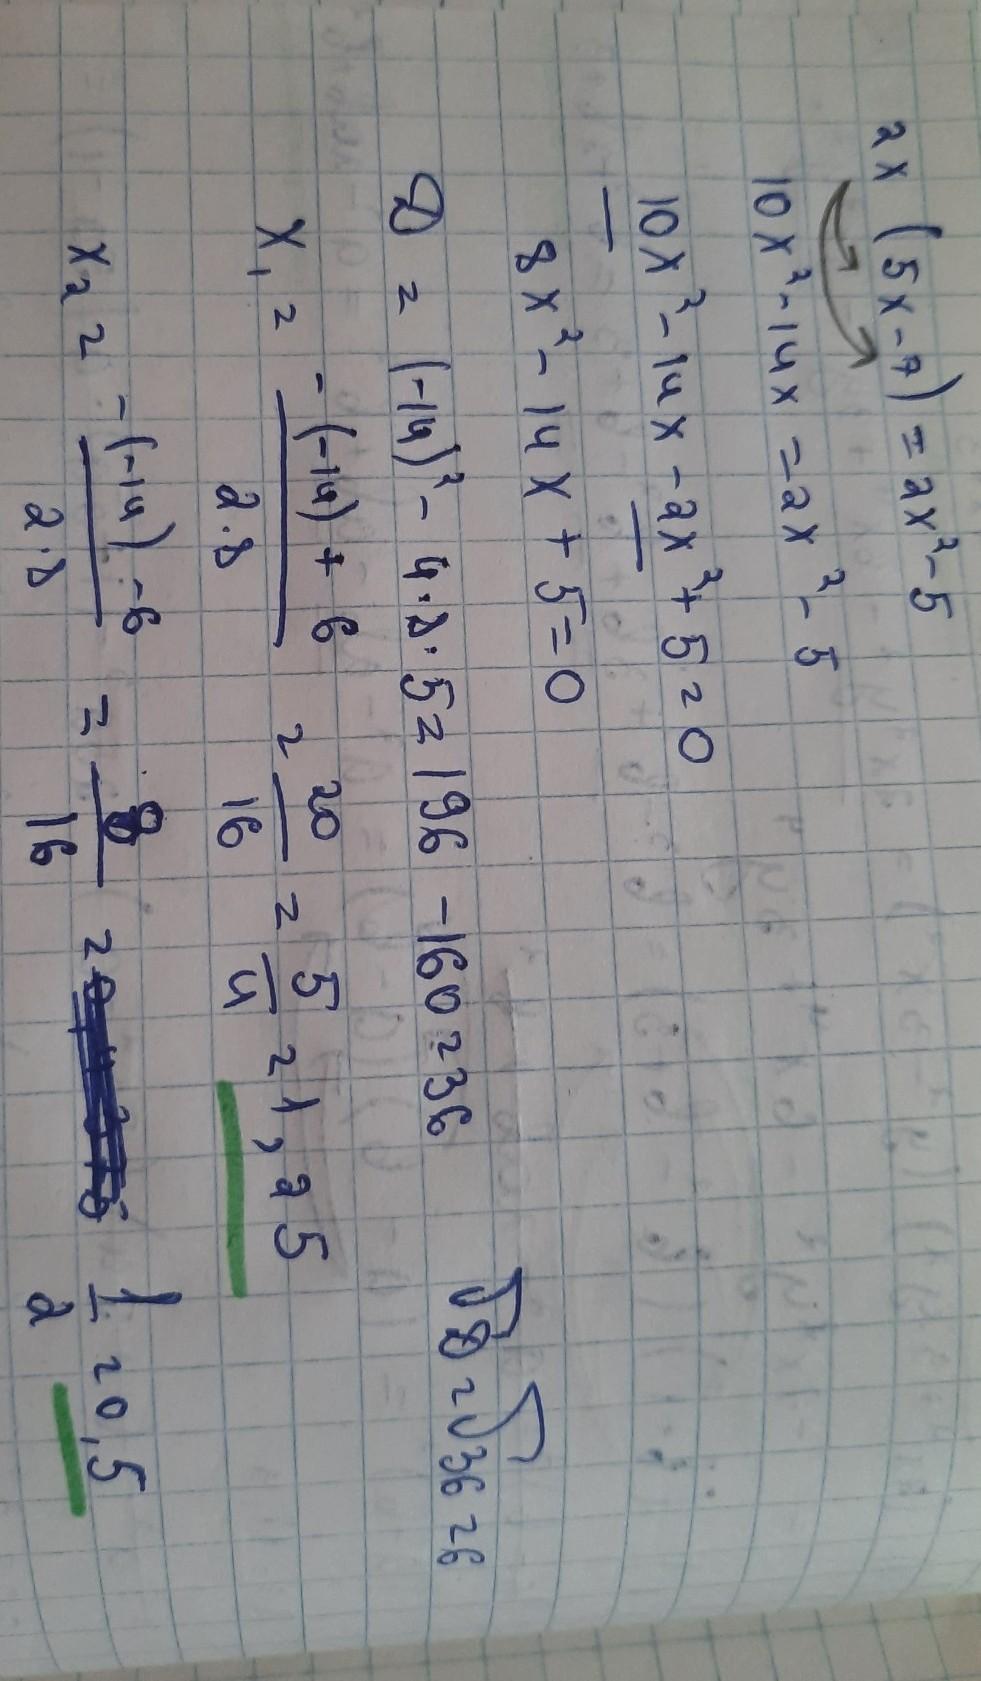 2x (5x-7) = 2x²-5
10x²-14x = 2x²-5
10x²-14x-2x²+5=0
8x²-14x+5=0
D = (-14)²-4·8·5=196-160=36
√D=√36=6
x₁ = -(-14)+6 / 2·8 = 20/16 = 5/4 = 1,25
x₂ = -(-14)-6 / 2·8 = 8/16 = 1/2 = 0,5